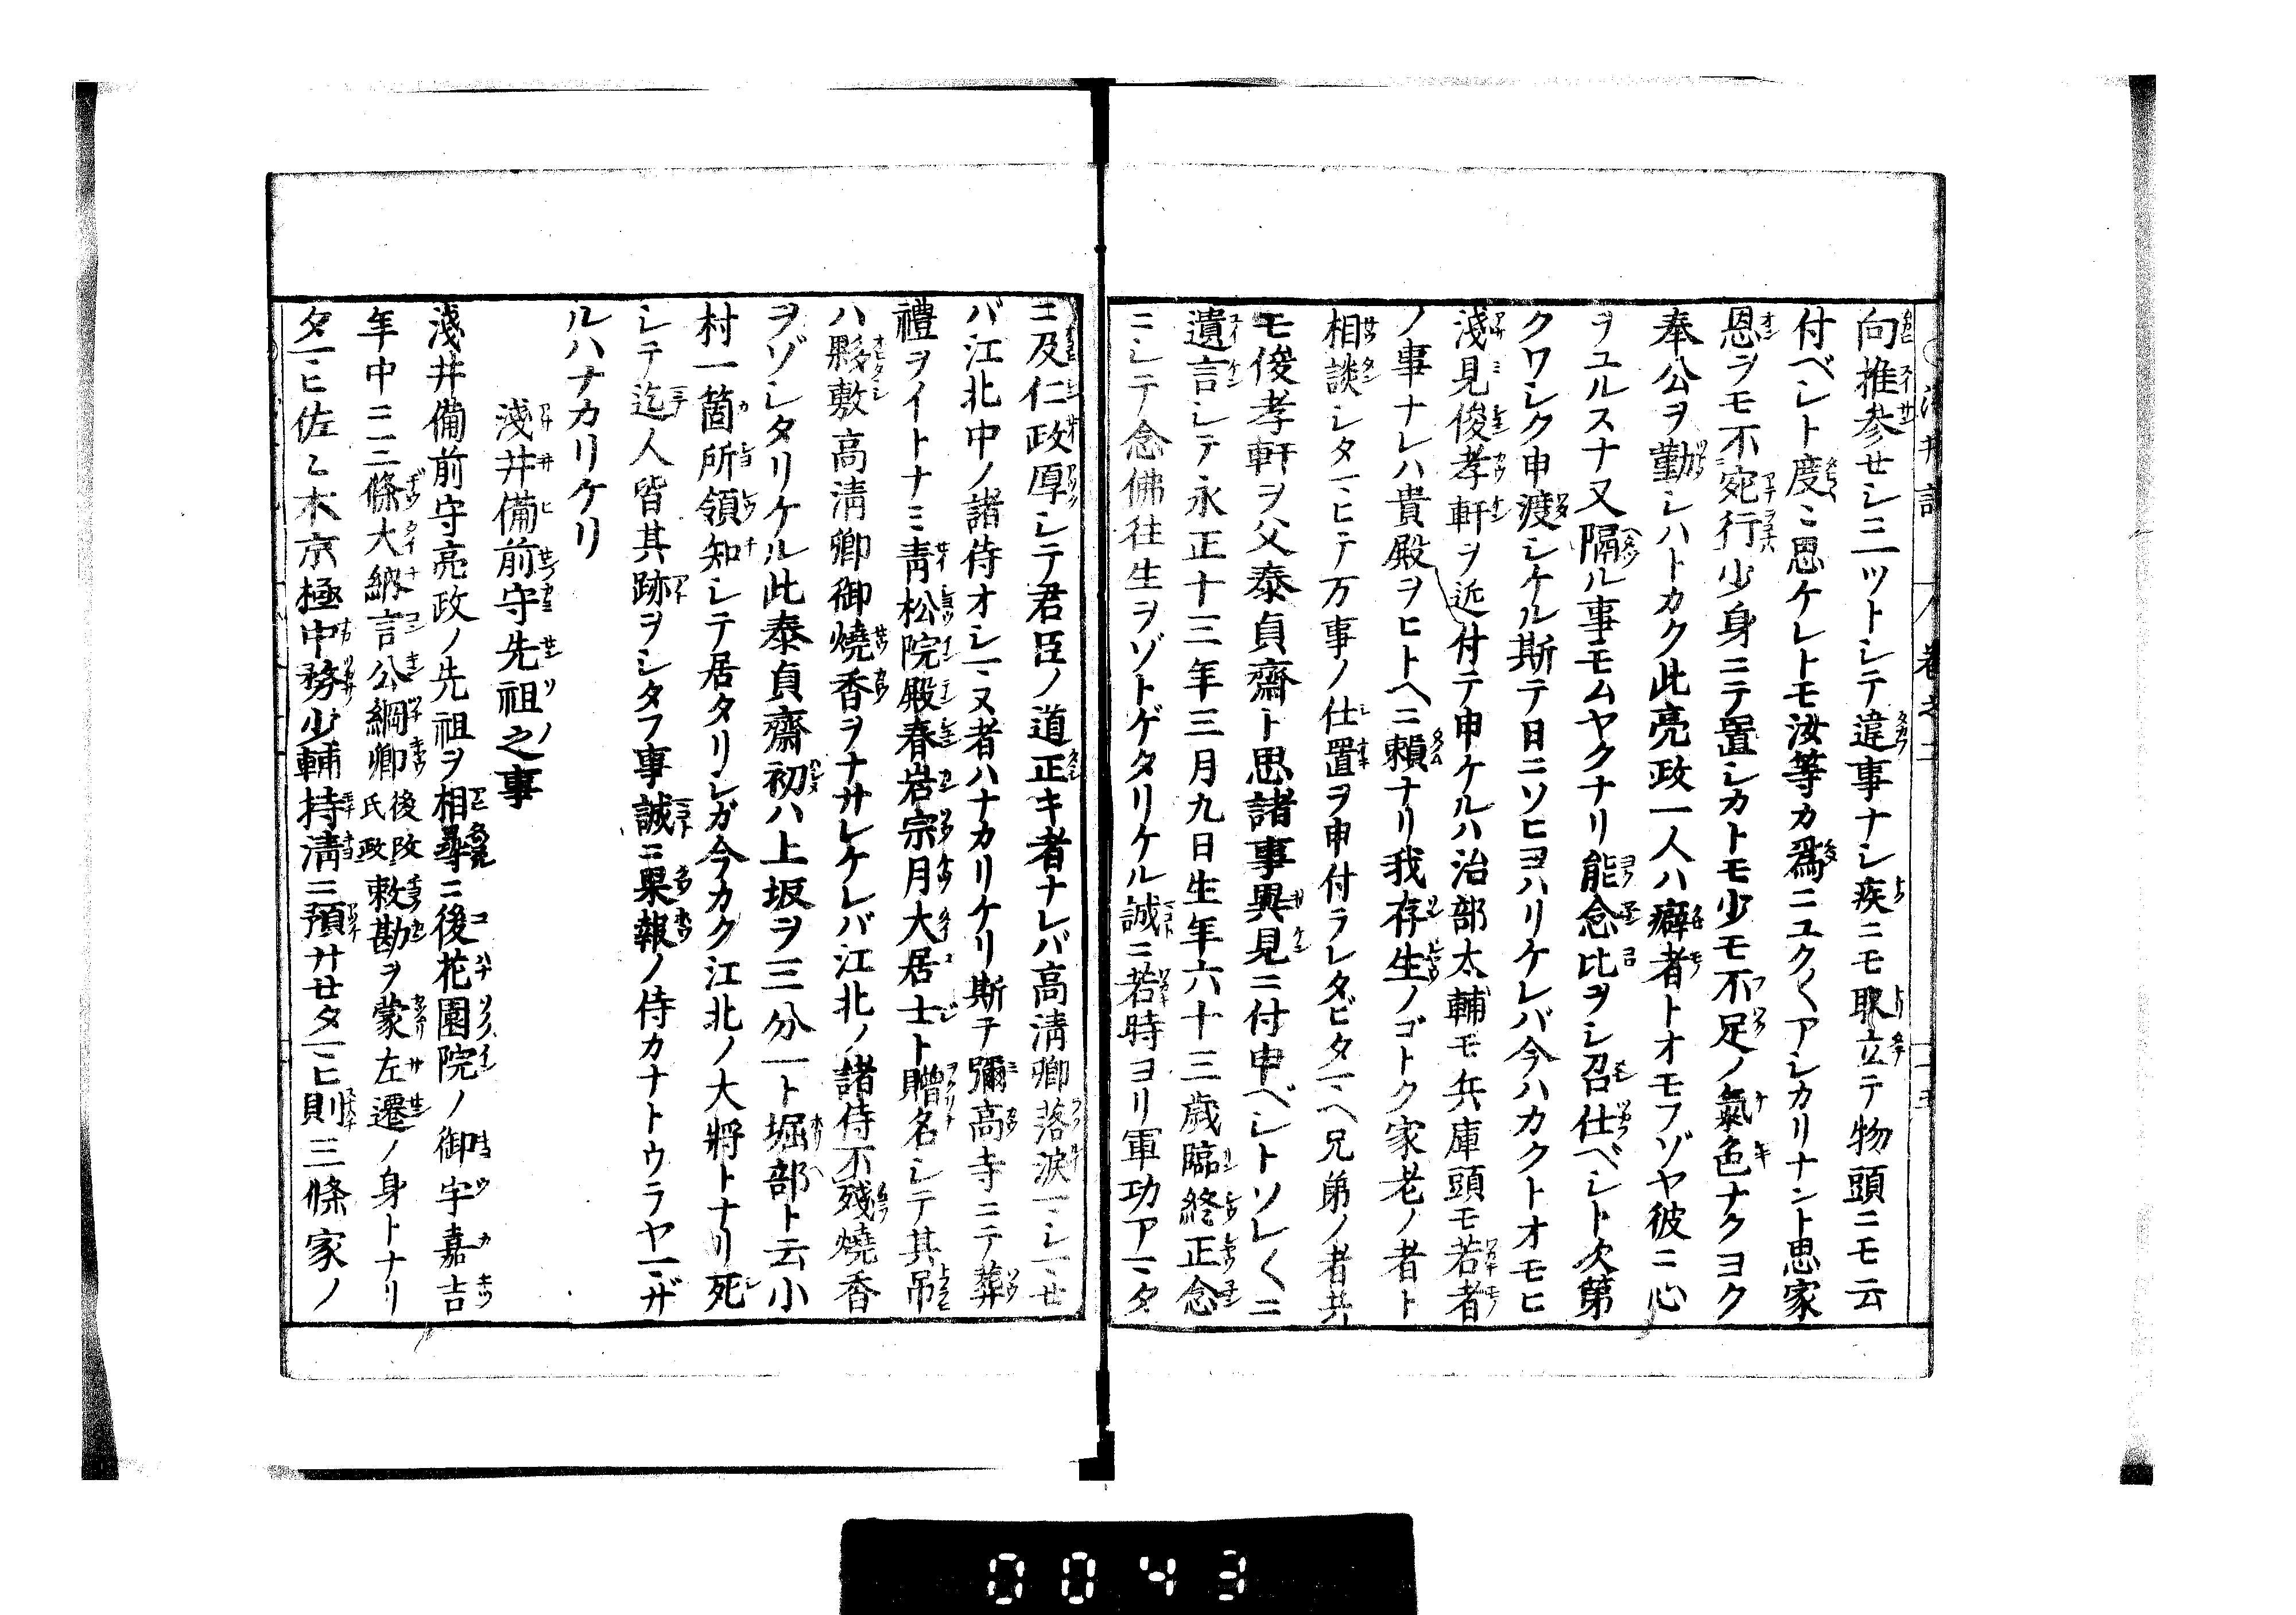 向推参セシ三ツトシテ違事ナシ疾ニモ取立テ物頭ニモ云
付ベシト度〻思ケレトモ汝等カ爲ニユク〱アシカリナント思家
恩ヲモ不宛行少身ニテ置シカトモ少モ不足ノ氣色ナクヨク
奉公ヲ勤シハトカク此亮政一人ハ癖者トオモフゾヤ彼ニ心
ヲユルスナ又隔ル事モムヤクナリ能念比ヲシ召仕ベシト次第
クワシク申渡シケル斯テ日ニソヒヨハリケレバ今ハカクトオモヒ
淺見俊孝軒ヲ近付テ申ケルハ治部太輔モ兵庫頭モ若者
ノ事ナレハ貴殿ヲヒトヘニ頼ナリ我存生ノゴトク家老ノ者ト
相談シタマヒテ万事ノ仕置ヲ申付ラレタビタマヘ兄弟ノ者共
モ俊孝軒ヲ父泰貞齋ト思諸事異見ニ付申ベシトソレ〱ニ
遺言シテ永正十三年三月九日生年六十三歳臨終正念
ニシテ念佛往生ヲゾトゲタリケル誠ニ若時ヨリ軍功アマタ
ニ及仁政厚シテ君臣ノ道正キ者ナレバ高淸卿落涙マシマセ
バ江北中ノ諸侍オシマヌ者ハナカリケリ斯テ彌高寺ニテ葬
禮ヲイトナミ靑松院殿春岩宗月大居士ト贈名シテ其吊
ハ夥敷高淸卿御燒香ヲナサレケレバ江北ノ諸侍不殘燒香
ヲゾシタリケル此泰貞齋初ハ上坂ヲ三分一ト堀部ト云小
村一箇所領知シテ居タリシガ今カク江北ノ大將トナリ死
シテ迄人皆其跡ヲシタフ事誠ニ果報ノ侍カナトウラヤマザ
ルハナカリケリ
淺井備前守先祖之事
淺井備前守亮政ノ先祖ヲ相尋ニ後花園院ノ御宇嘉吉
年中ニ三條大納言公綱卿後改氏政敕勘ヲ蒙左遷ノ身トナリ
タマヒ佐〻木京極中務少輔持淸ニ預ケセタマヒ則三條家ノ
0043